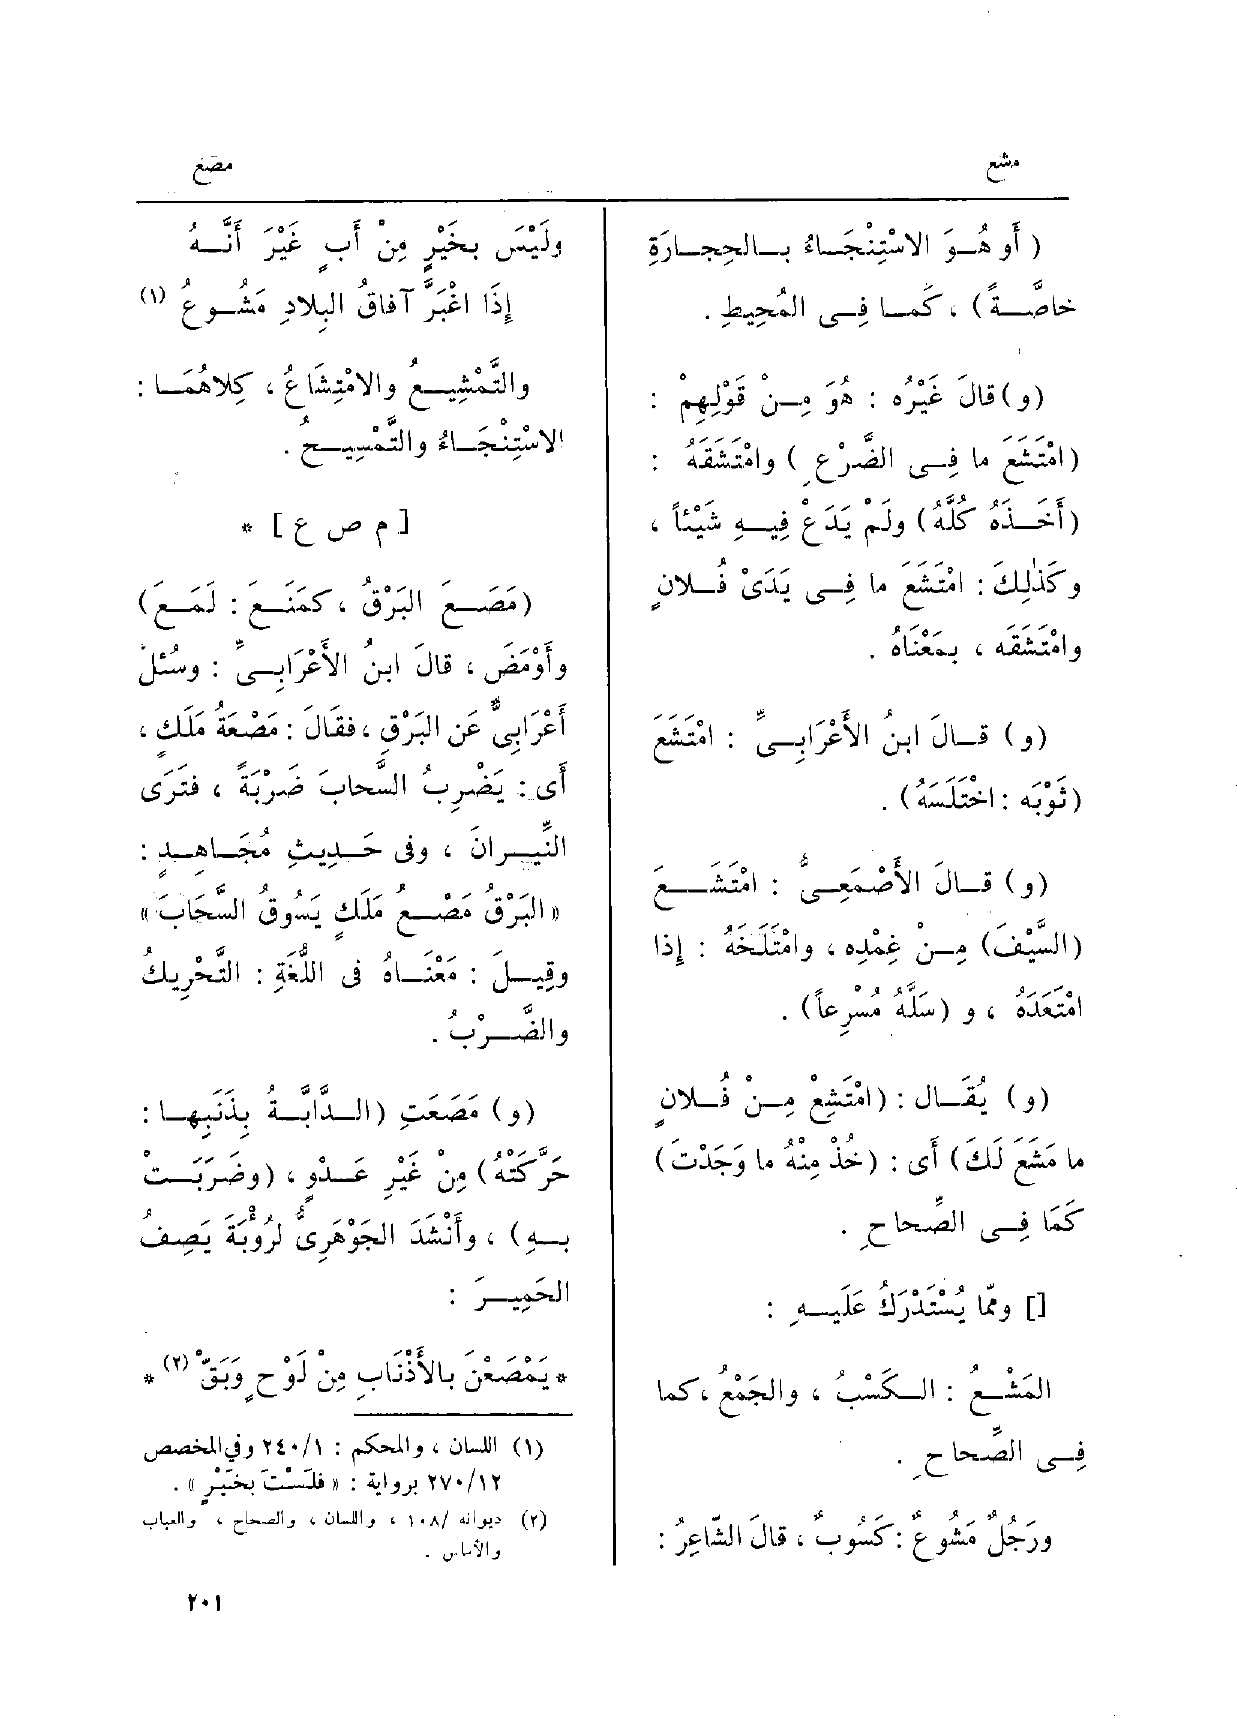 مشع
مصع
( أو هُــوَ الاسْتِنْجَــاءُ بــالحِجــارَةِ
خاصَّــةً ) ، كَمــا فِــى المُحِيطِ .
(و) قالَ غَيْرُه : هُوَ مِــنْ قَوْلِهِمْ :
(امْتَشَعَ ما فِــى الضَّرْعِ ) وامْتَشَقَهُ :
(أَخَــذَهُ كُلَّهُ) ولَمْ يَدَعْ فِيــهِ شَيْئاً ،
وكَذٰلِكَ : امْتَشَعَ ما فِــى يَدَىْ فُــلانٍ
وامْتَشَقَه ، بمَعْنَاهُ .
(و) قــالَ ابنُ الأَعْرَابِــىِّ : امْتَشَعَ
(ثَوْبَه : اخْتَلَسَهُ) .
(و) قــالَ الأَصْمَعِــىُّ : امْتَشَــعَ
(السَّيْفَ) مِــنْ غِمْدِه ، وامْتَلَخَهُ : إذا
امْتَعَدَهُ ، و (سَلَّهُ مُسْرِعاً) .
(و) يُقَــال : (امْتَشِعْ مِــنْ فُــلانٍ
ما مَشَعَ لَكَ) أَى : (خُذْ مِنْهُ ما وَجَدْتَ)
كَمَا فِــى الصِّحاحِ .
[] ومّا يُسْتَدْرَكُ عَلَيــهِ :
المَشْــعُ : الــكَسْبُ ، والجَمْعُ ، كما
فِــى الصِّحاحِ .
ورَجُلٌ مَشُوعٌ : كَسُوبٌ ، قالَ الشّاعِرُ :
ولَيْسَ بخَيْرٍ مِنْ أَبٍ غَيْرَ أَنَّــهُ
إِذَا اغْبَرَّ آفاقُ البِلادِ مَشُــوعُ (١)
والتَّمْشِيــعُ والامْتِشَاعُ ، كِلاهُمَــا :
الاسْتِنْجَــاءُ والتَّمْسِيــحُ .
[ م ص ع ] *
(مَصَــعَ البَرْقُ ، كمَنَــعَ : لَمَــعَ)
وأَوْمَضَ ، قالَ ابنُ الأَعْرَابِــىِّ : وسُئلَ
أَعْرَابِىٌّ عَنِ البَرْقِ ، فقَالَ : مَصْعَةُ مَلَكٍ ،
أَى : يَضْرِبُ السَّحابَ ضَرْبَةً ، فتَرَى
النِّيــرانَ ، وفى حَــدِيثِ مُجَــاهِــدٍ :
« البَرْقُ مَصْــعُ مَلَكٍ يَسُوقُ السَّحَابَ »
وقِيــلَ : مَعْنَــاهُ فى اللُّغَةِ : التَّحْرِيكُ
والضَّــرْبُ .
(و) مَصَعَتِ (الــدَّابَّــةُ بِذَنَبِهــا :
حَرَّكَتْهُ) مِنْ غَيْرِ عَــدْوٍ ، (وضَرَبَــتْ
بــهِ) ، وأَنْشَدَ الجَوْهَرِىُّ لرُؤْبَةَ يَصِفُ
الحَمِيــرَ :
* يَمْصَعْنَ بالأَذْنَابِ مِنْ لَوْحٍ وبَقّْ (٢) *
(١) اللسان ، والمحكم : ٢٤٠/١ وفي المخصص
٢٧٠/١٢ برواية : « فلَسْتَ بخَيْرٍ » .
(٢) ديوانه /١٠٨ ، واللسان ، والصحاح ، والعباب
والأساس .
٢٠١